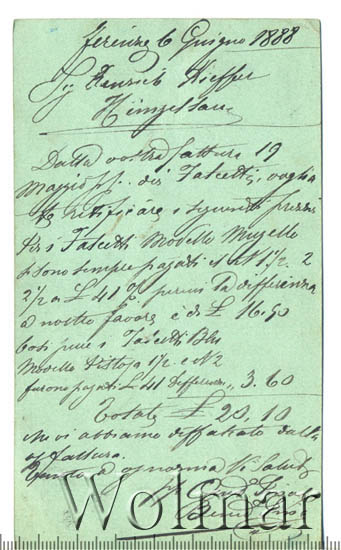 Firenze 6 Giugno 1888
Sig Heinrich Kieffer
Dalla vostra fattura 19
Maggio p.p. dei Falcetti, voglia
rettificare i seguenti prezzi
Per i Falcetti Modello Mugello
si sono sempre pagati 1 1/2 2
2 1/2 a £ 41 % percui la differenza
a nostro favore è di £ 16.50
Così pure i Falcetti Blu
Modello Pistoja 1 1/2 e N 2
furono pagati £ 41 differenza „ 3.60
Totale £ 20.10
che vi abbiamo diffalcato dalla
fattura.
Tanto a norma Vi Saluto
Wolmar